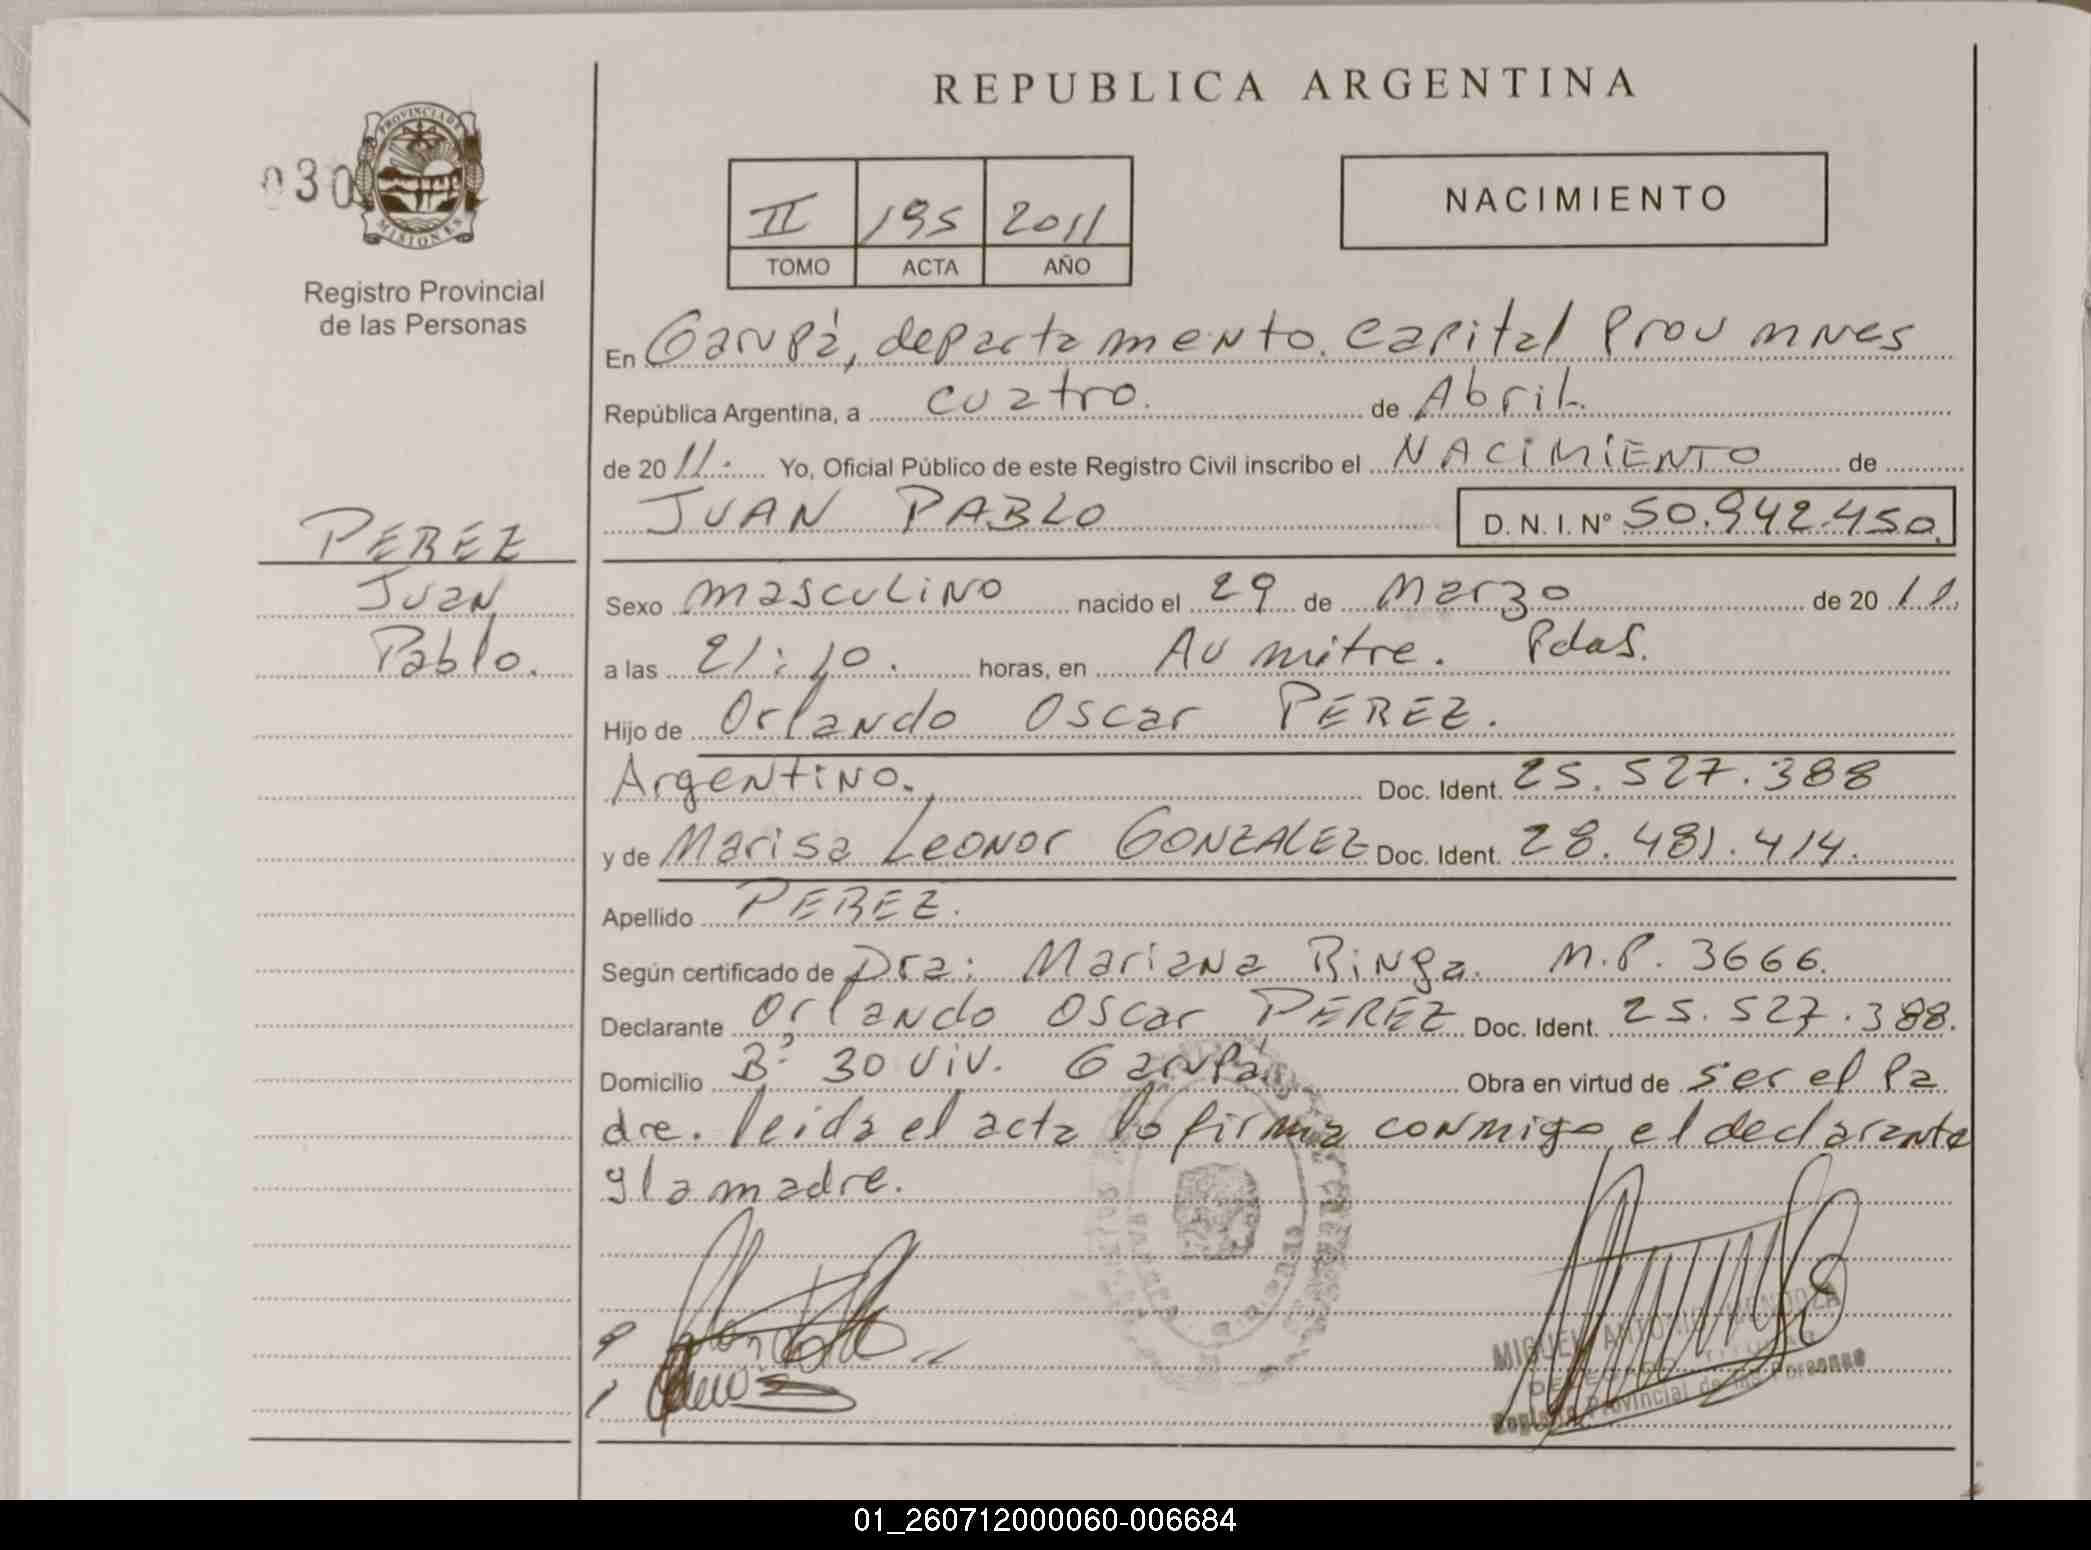 REPUBLICA ARGENTINA
PROVINCIA DE
MISIONES
030
Registro Provincial
de las Personas
II 195 2011
TOMO ACTA AÑO
NACIMIENTO
En Garupá, departamento Capital Prov Mnes
República Argentina, a cuatro. de Abril
de 2011. Yo, Oficial Público de este Registro Civil inscribo el NACIMIENTO de
JUAN PABLO D. N. I. Nº 50.942.450
PEREZ
Juan
Pablo.
Sexo masculino nacido el 29 de Marzo de 2011
a las 21:10. horas, en Av mitre. Pdas.
Hijo de Orlando Oscar PEREZ.
Argentino. Doc. Ident. 25.527.388
y de Marisa Leonor GONZALEZ Doc. Ident. 28.481.414.
Apellido PEREZ.
Según certificado de Dra: Mariana Ringa. M.P. 3666.
Declarante Orlando Oscar PEREZ Doc. Ident. 25.527.388.
Domicilio Bº 30 viv. Garupá Obra en virtud de ser el Pa
dre. leida el acta lo firma conmigo el declarante
y la madre.
MIGUEL ANTONIO MENDOZA
DELEGADO TITULAR
Registro Provincial de las Personas
01_260712000060-006684